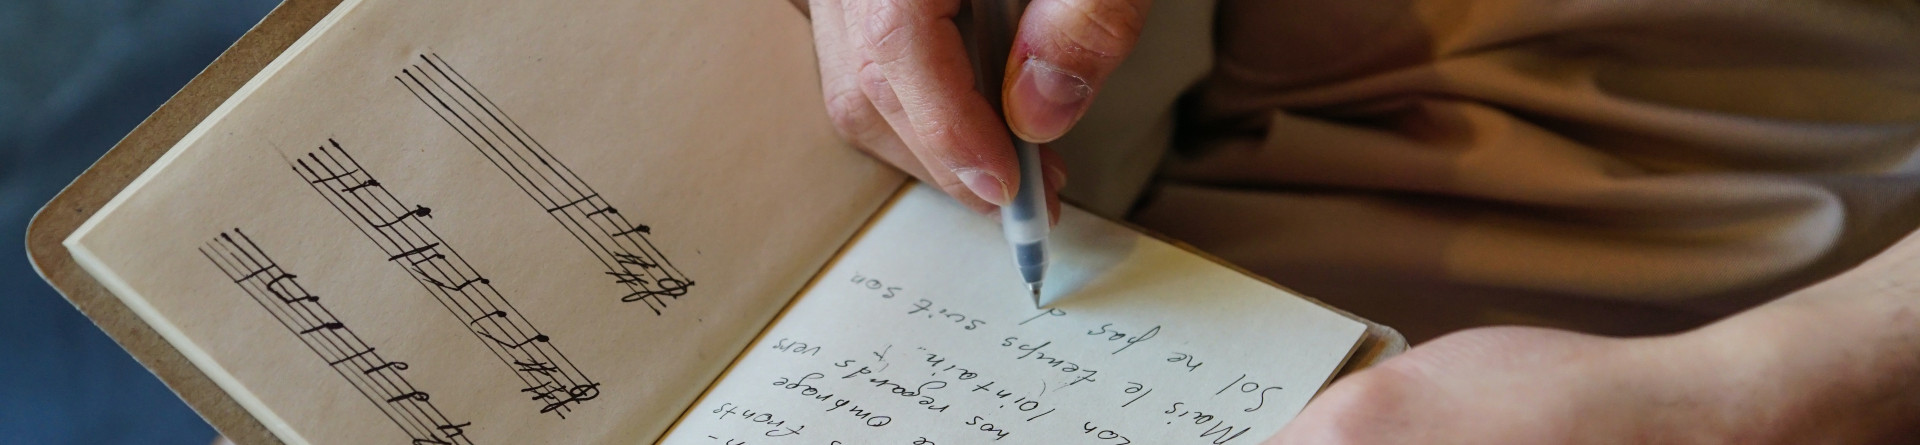 fronts
ombrage
nos regards vers
zon lointain.
Mais le temps suit son
Sol ne pas d